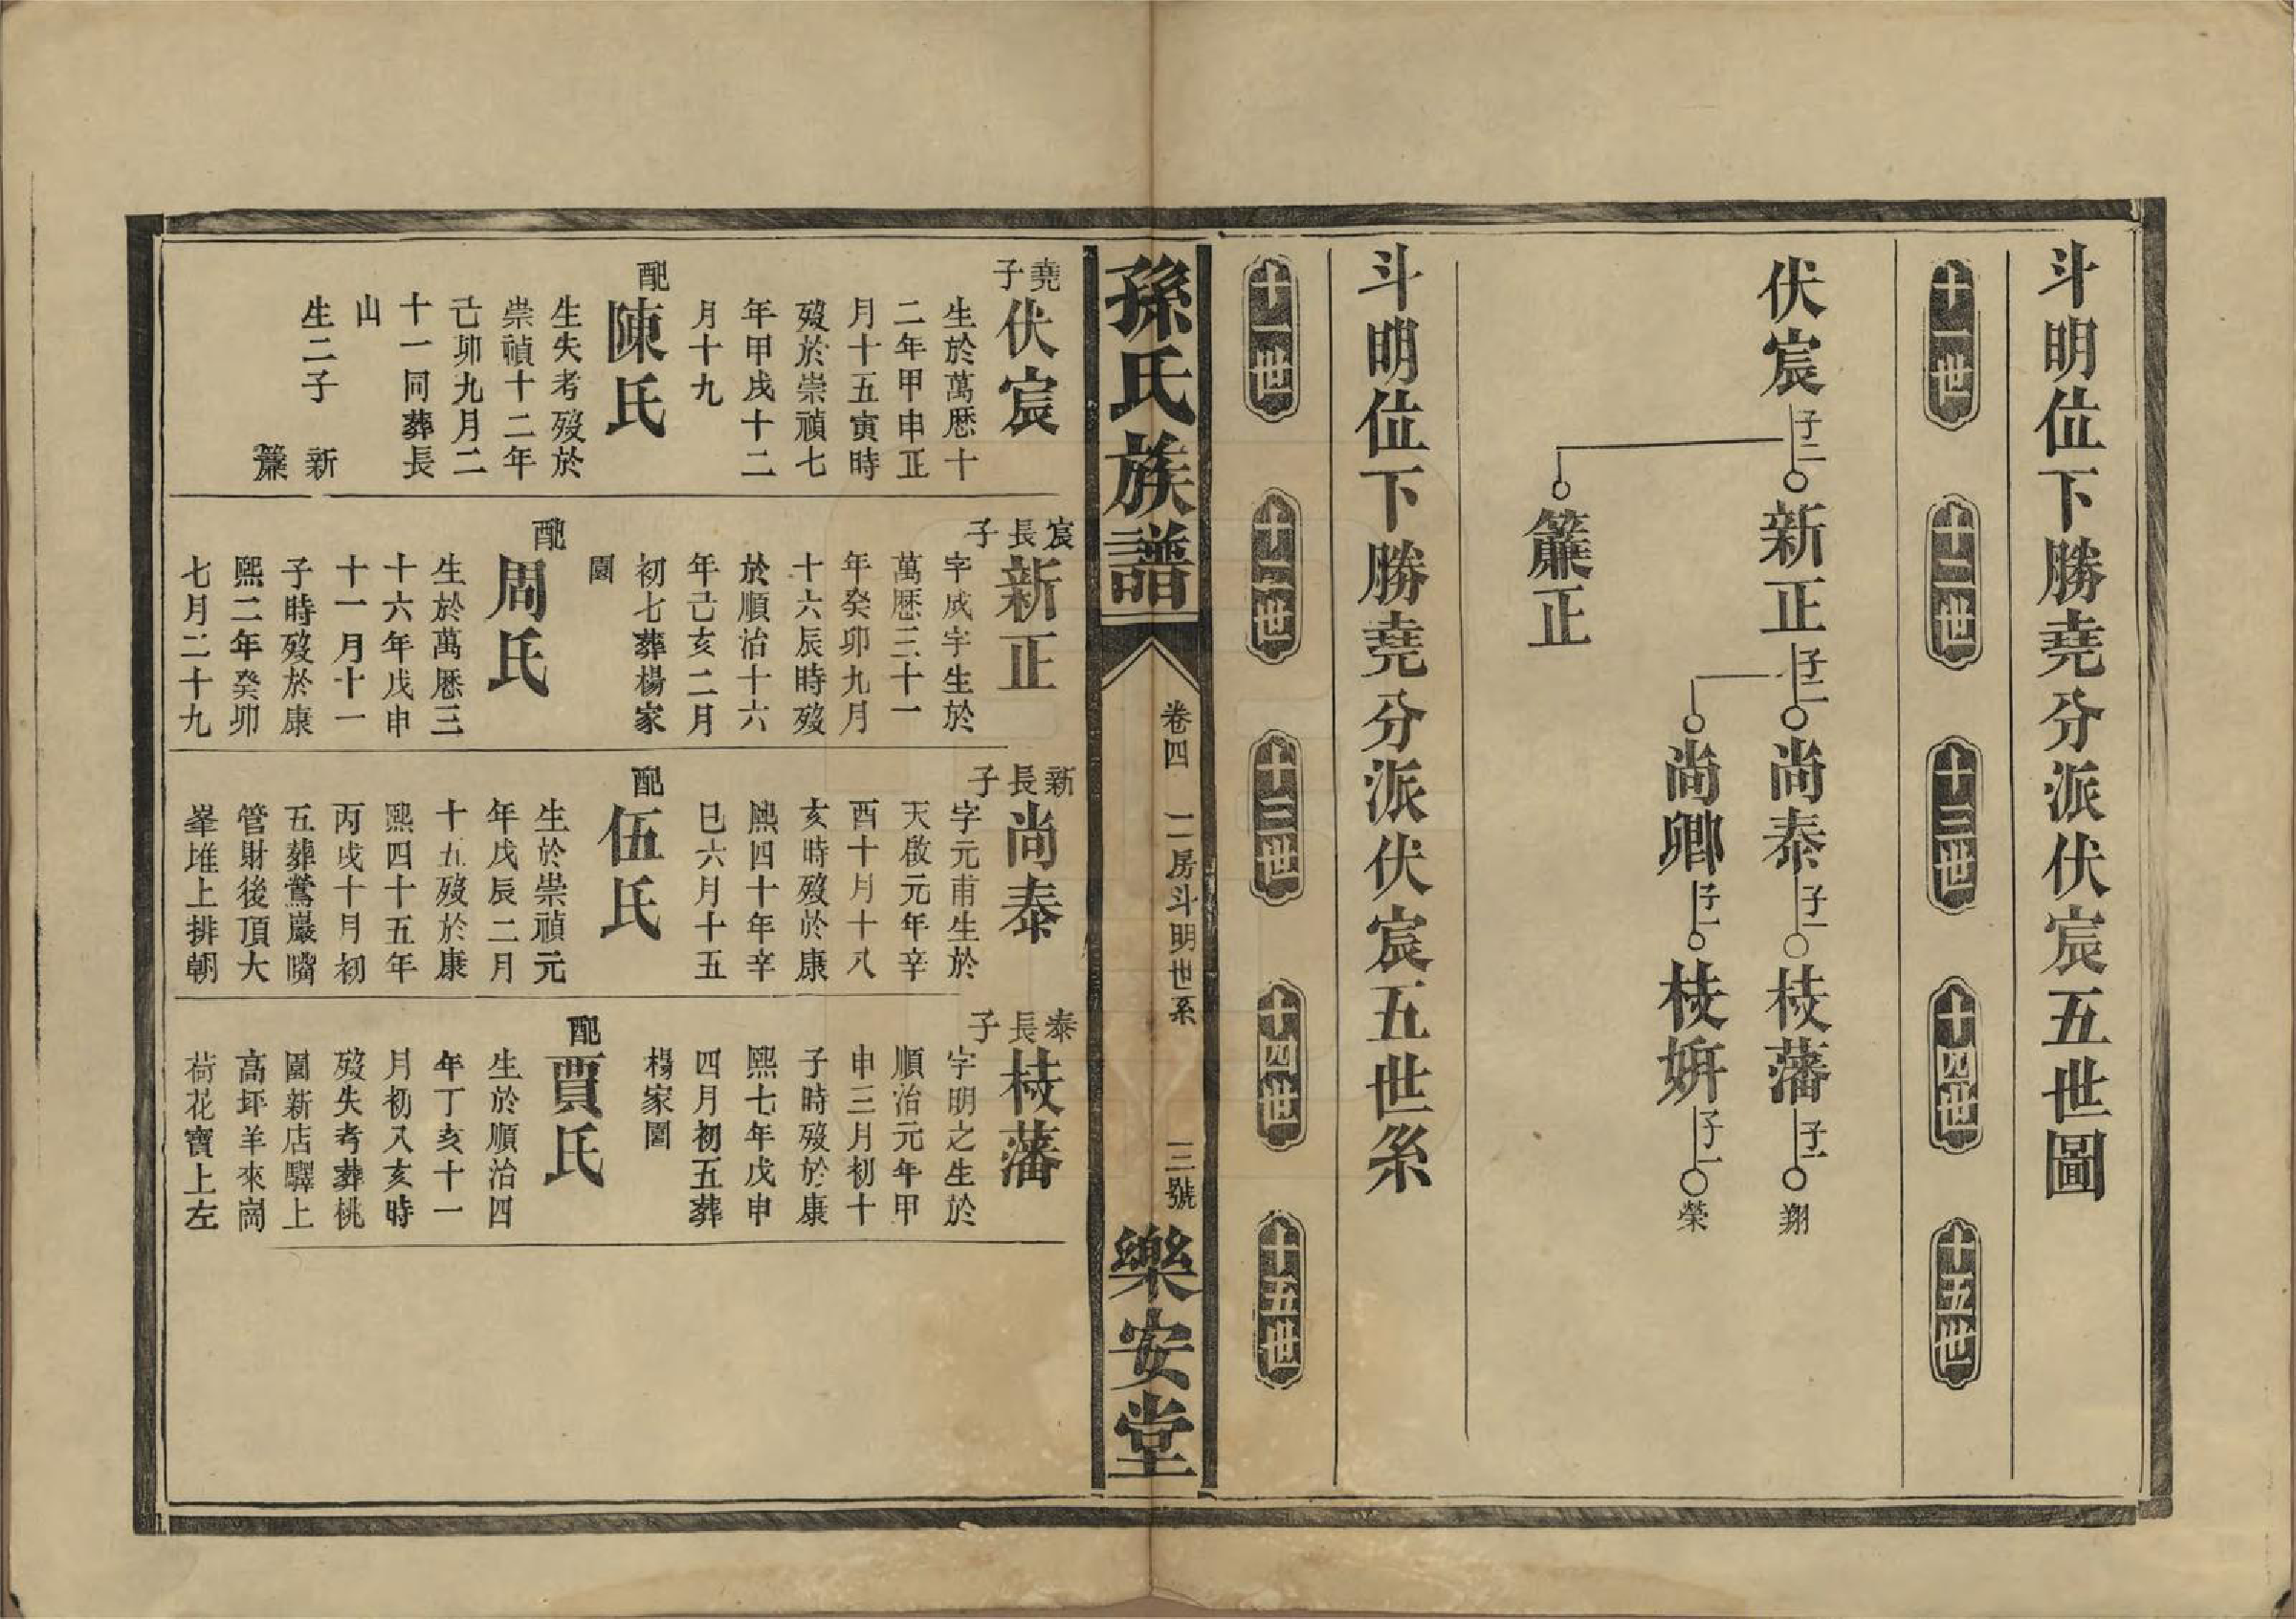 斗明位下勝堯分派伏宸五世圖
十一世
十二世
十三世
十四世
十五世
伏宸
子二
新正
子二
尚泰
子一
枝藩
子一
翔
尚卿
子一
枝妍
子一
榮
簾正
斗明位下勝堯分派伏宸五世系
十一世
十二世
十三世
十四世
十五世
孫氏族譜
卷四
二房斗明世系
三號
樂安堂
堯子
伏宸
生於萬歷十
二年甲申正
月十五寅時
歿於崇禎七
年甲戌十二
月十九
配
陳氏
生失考歿於
崇禎十二年
己卯九月二
十一同葬長
山
生二子 新
簾
宸長子
新正
字成宇生於
萬歷三十一
年癸卯九月
十六辰時歿
於順治十六
年己亥二月
初七葬楊家
園
配
周氏
生於萬歷三
十六年戊申
十一月十一
子時歿於康
熙二年癸卯
七月二十九
新長子
尚泰
字元甫生於
天啟元年辛
酉十月十八
亥時歿於康
熙四十年辛
巳六月十五
配
伍氏
生於崇禎元
年戊辰二月
十五歿於康
熙四十五年
丙戌十月初
五葬鶯巖嘴
管財後頂大
峯堆上排朝
泰長子
枝藩
字明之生於
順治元年甲
申三月初十
子時歿於康
熙七年戊申
四月初五葬
楊家園
配
賈氏
生於順治四
年丁亥十一
月初八亥時
歿失考葬桃
園新店驛上
高坪羊來崗
荷花寶上左